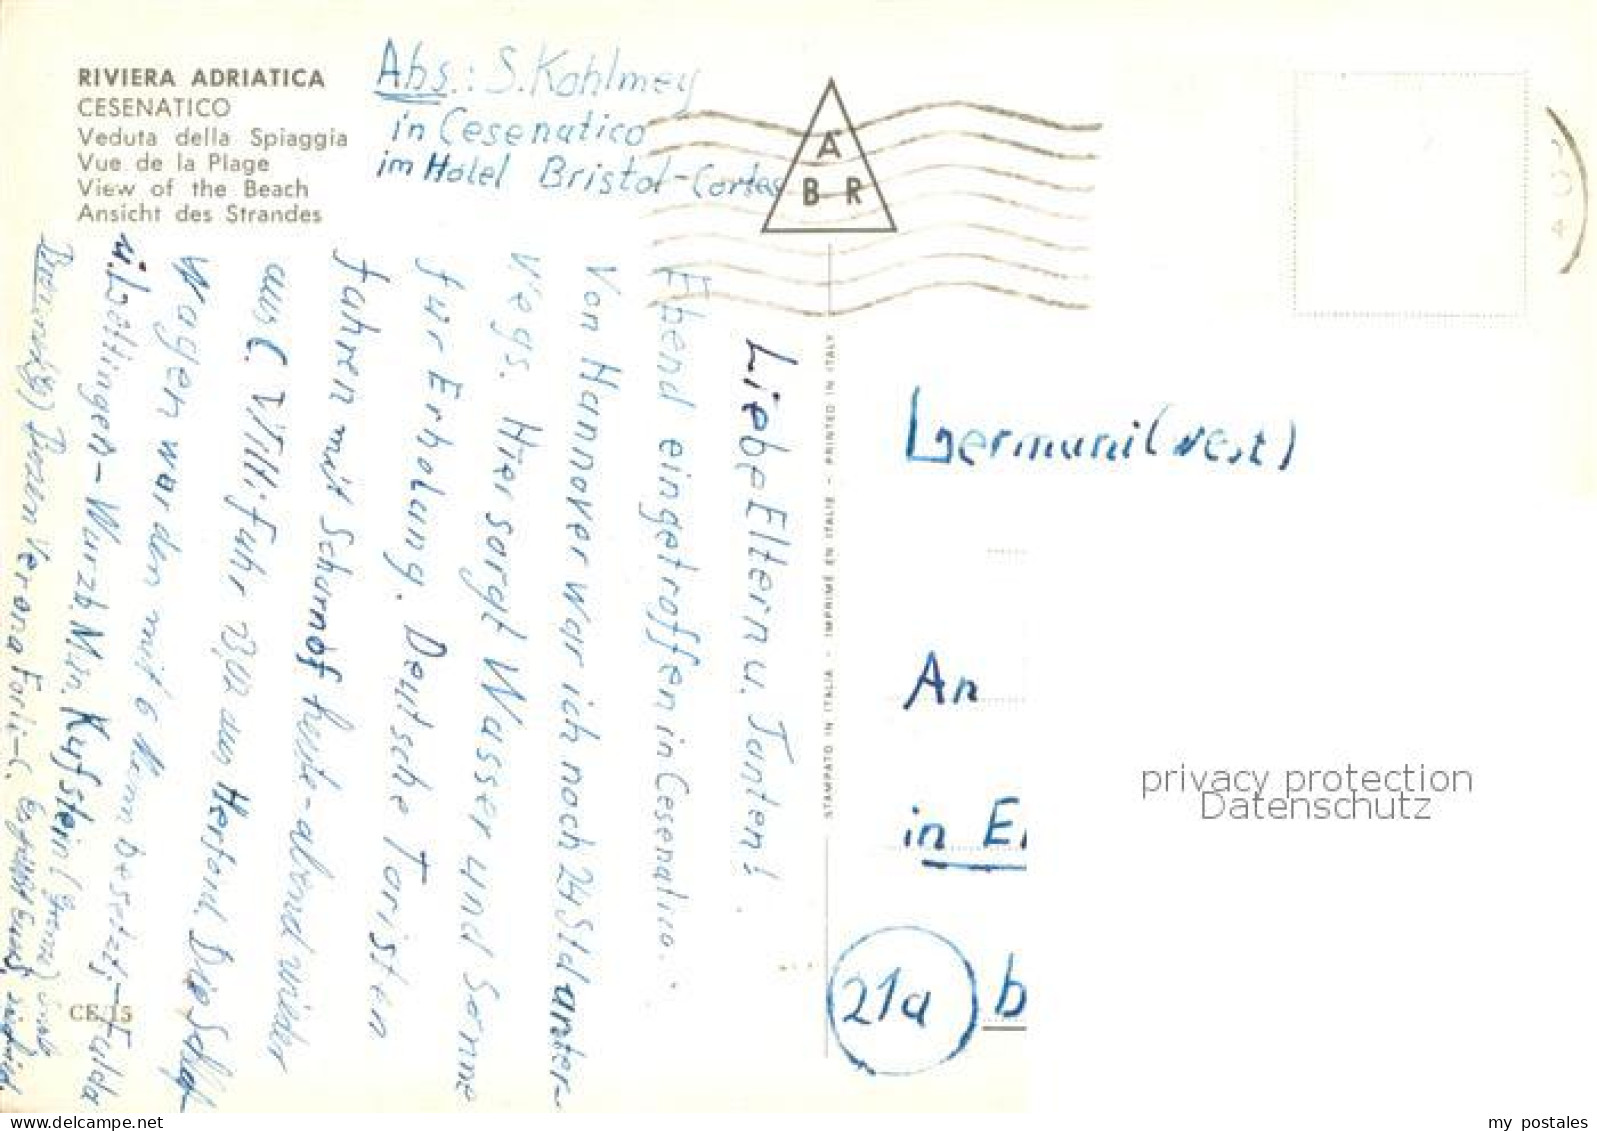 RIVIERA ADRIATICA
CESENATICO
Veduta della Spiaggia
Vue de la Plage
View of the Beach
Ansicht des Strandes
Abs.: S. Kohlmey
in Cesenatico
im Hotel Bristol-Cortas
A
B R
Liebe Eltern u. Tanten!
Ebend eingetroffen in Cesenatico.
Von Hannover war ich noch 24 Std unter-
wegs. Hier sorgt Wasser und Sonne
für Erholung. Deutsche Toristen
fahren mit Scharnof heute-abend wieder
aus C. V/III. fuhr aus Herford. Die Schlaf-
Wagen warden mit 6 Mann besetzt,-Fulda
u. Göttingen-Würzb. Mün. Kufstein (Grenze)
Brenner) Bozen Verona Forli-C. Es grüßt Euch
STAMPATO IN ITALIA - IMPRIMÉ EN ITALIE - PRINTED IN ITALY
Germani (West)
An
in E
21a b
CE 15
privacy protection
Datenschutz
www.delcampe.net
my_postales